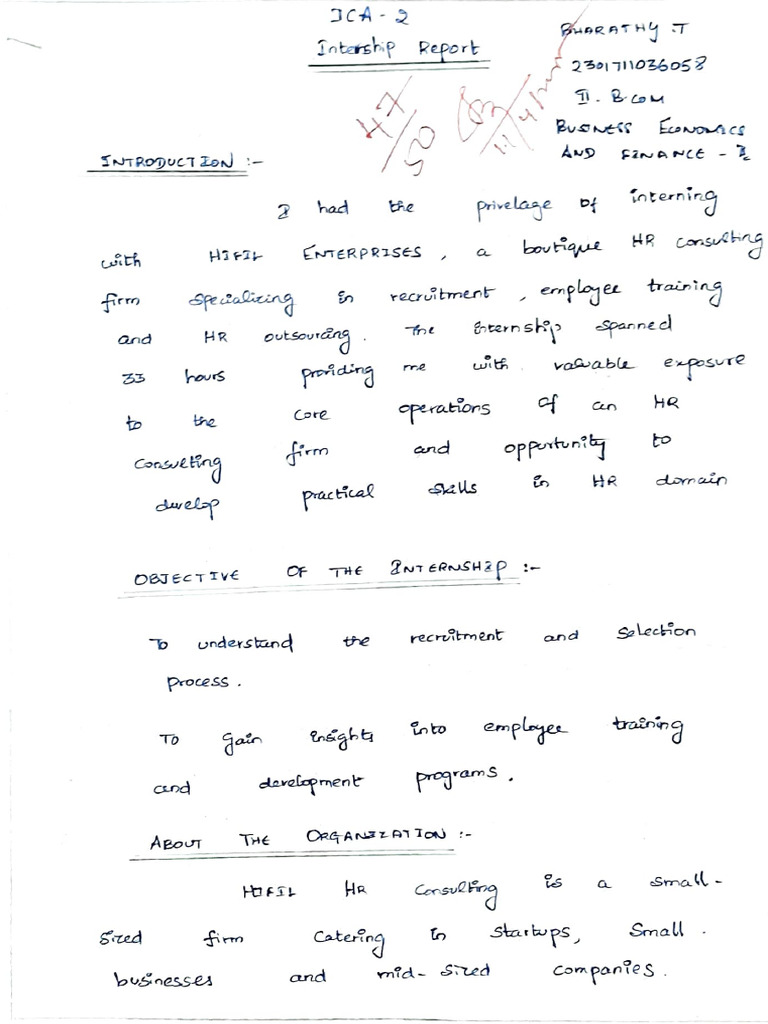 ICA - 2
Intership Report
BHARATHY .T
2301711036058
II . B.COM
BUSINESS ECONOMICS
AND FINANCE - I
47/50
INTRODUCTION :-
I had the privelage of interning
with HIFIL ENTERPRISES , a boutique HR consulting
firm specializing in recruitment , employee training
and HR outsourcing. The internship spanned
33 hours providing me with valuable exposure
to the core operations of an HR
consulting firm and opportunity to
develop practical skills in HR domain
OBJECTIVE OF THE INTERNSHIP :-
To understand the recruitment and selection
process .
To gain insights into employee training
and development programs .
ABOUT THE ORGANIZATION :-
HIFIL HR Consulting is a small-
sized firm catering in startups, small .
businesses and mid-sized companies .